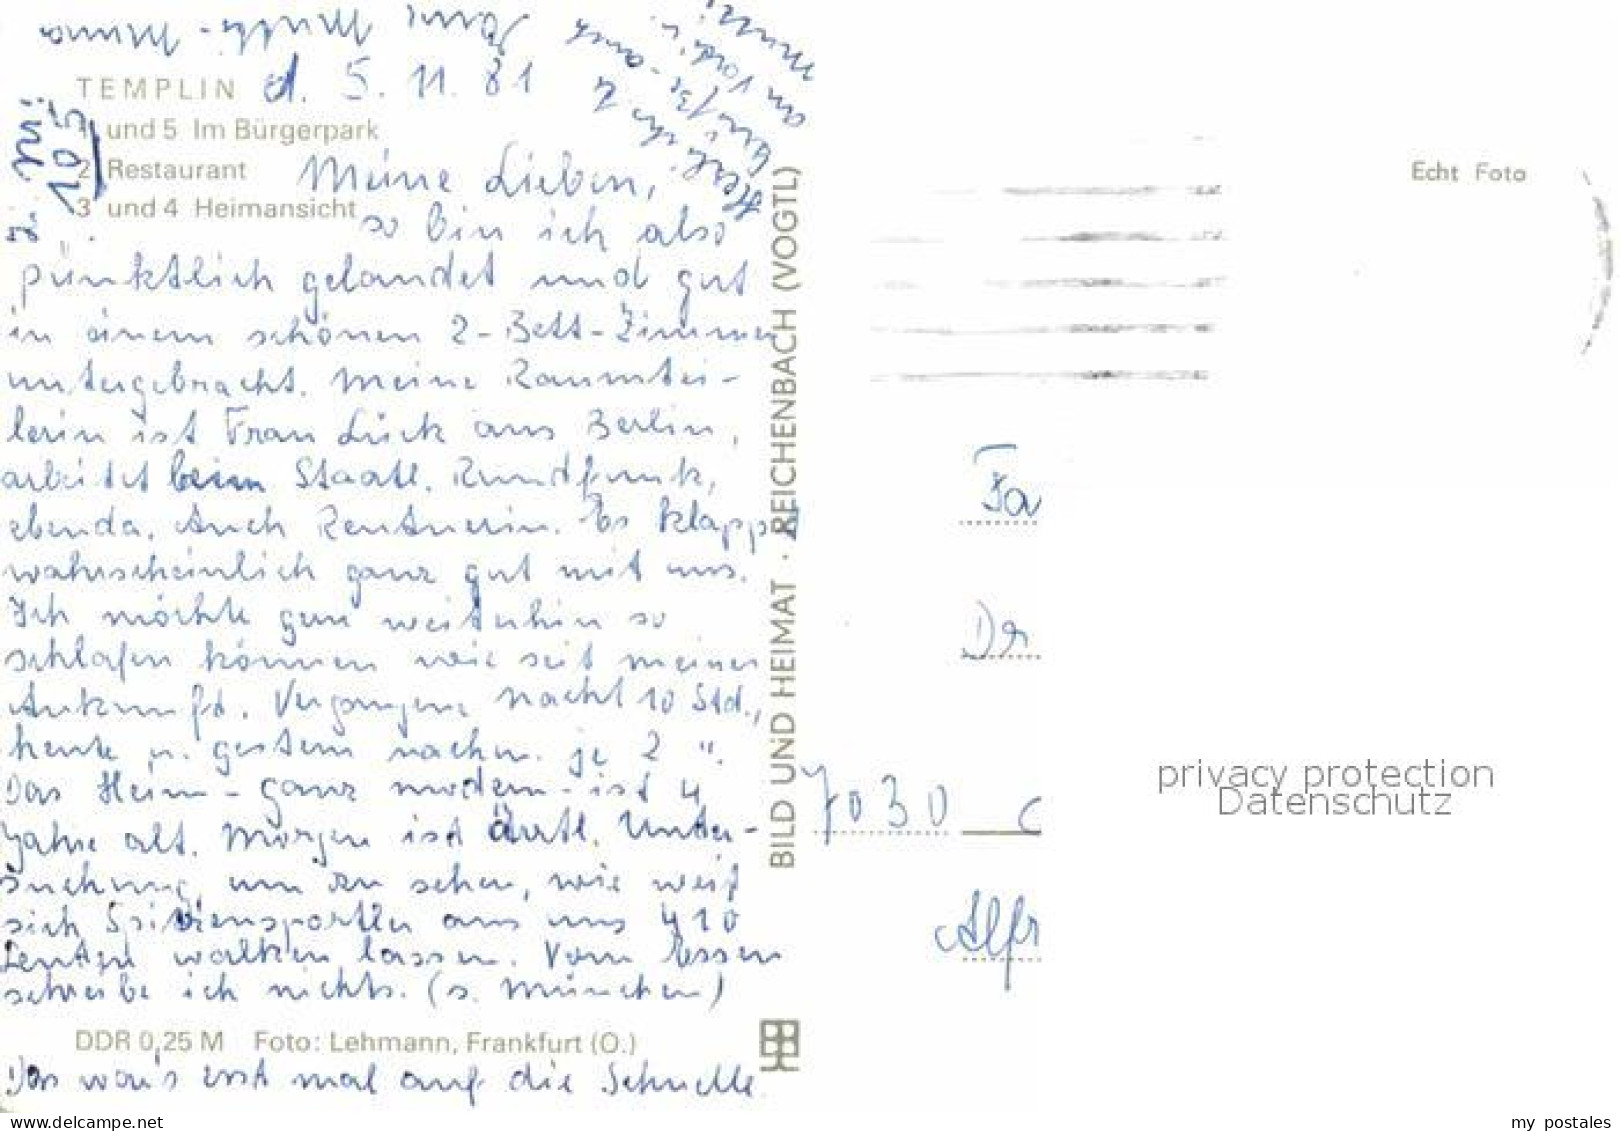 TEMPLIN d. 5. 11. 81
1 und 5 Im Bürgerpark
2 Restaurant
3 und 4 Heimansicht
Z. Nr.:
105
Meine Lieben,
so bin ich also
pünktlich gelandet und gut
in einem schönen 2-Bett-Zimmer
untergebracht. Meine Raumtei-
lerin ist Frau Lück aus Berlin,
arbeitet beim Staatl. Rundfunk,
ebenda. Auch Rentnerin. Es klappt
wahrscheinlich ganz gut mit uns.
Ich möchte gern weiterhin so
schlafen können wie seit meiner
Ankunft. Vergangene Nacht 10 Std.,
heute u. gestern nachm. je 2 ".
Das Heim - ganz modern - ist 4
Jahre alt. Morgen ist ärztl. Unter-
suchung, um zu sehen, wie weit
sich Spitzensportler aus uns
walken lassen. Vom Essen
schreibe ich nichts. (s. München)
DDR 0,25 M Foto: Lehmann, Frankfurt (O.)
Das wär's erst mal auf die Schnelle
Herzlichst
Grüße
Eure Mutti-Mima
BILD UND HEIMAT · REICHENBACH (VOGTL)
Echt Foto
Fa
Dr
7030
Alfr
privacy protection
Datenschutz
www.delcampe.net
my_postales